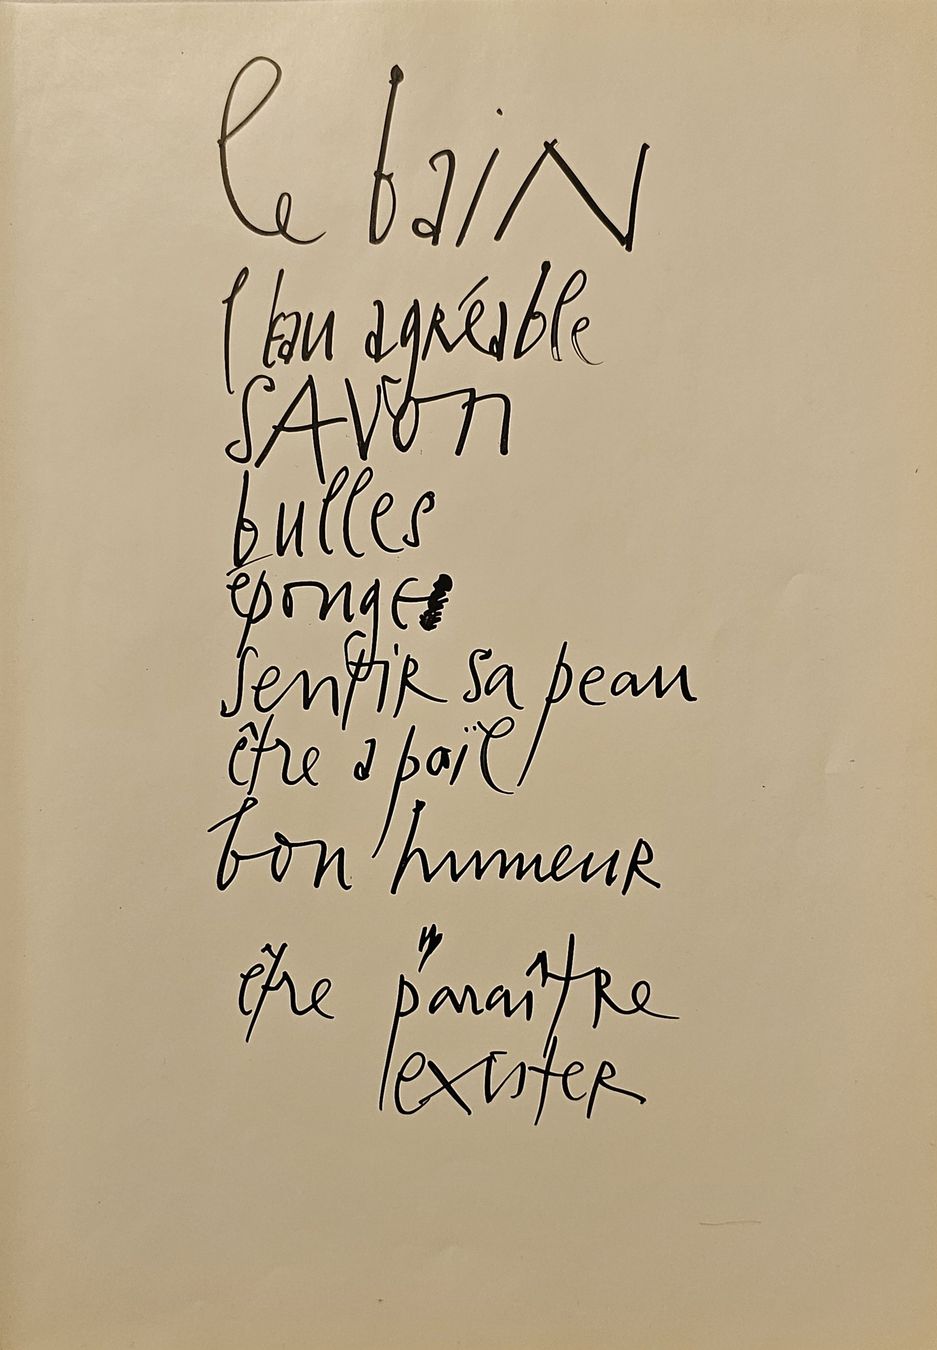 le baiN
l'eau agréable
SAVon
bulles
éponge
sentiR sa peau
être a païl
bon humeuR
être paraîtRe
existeR